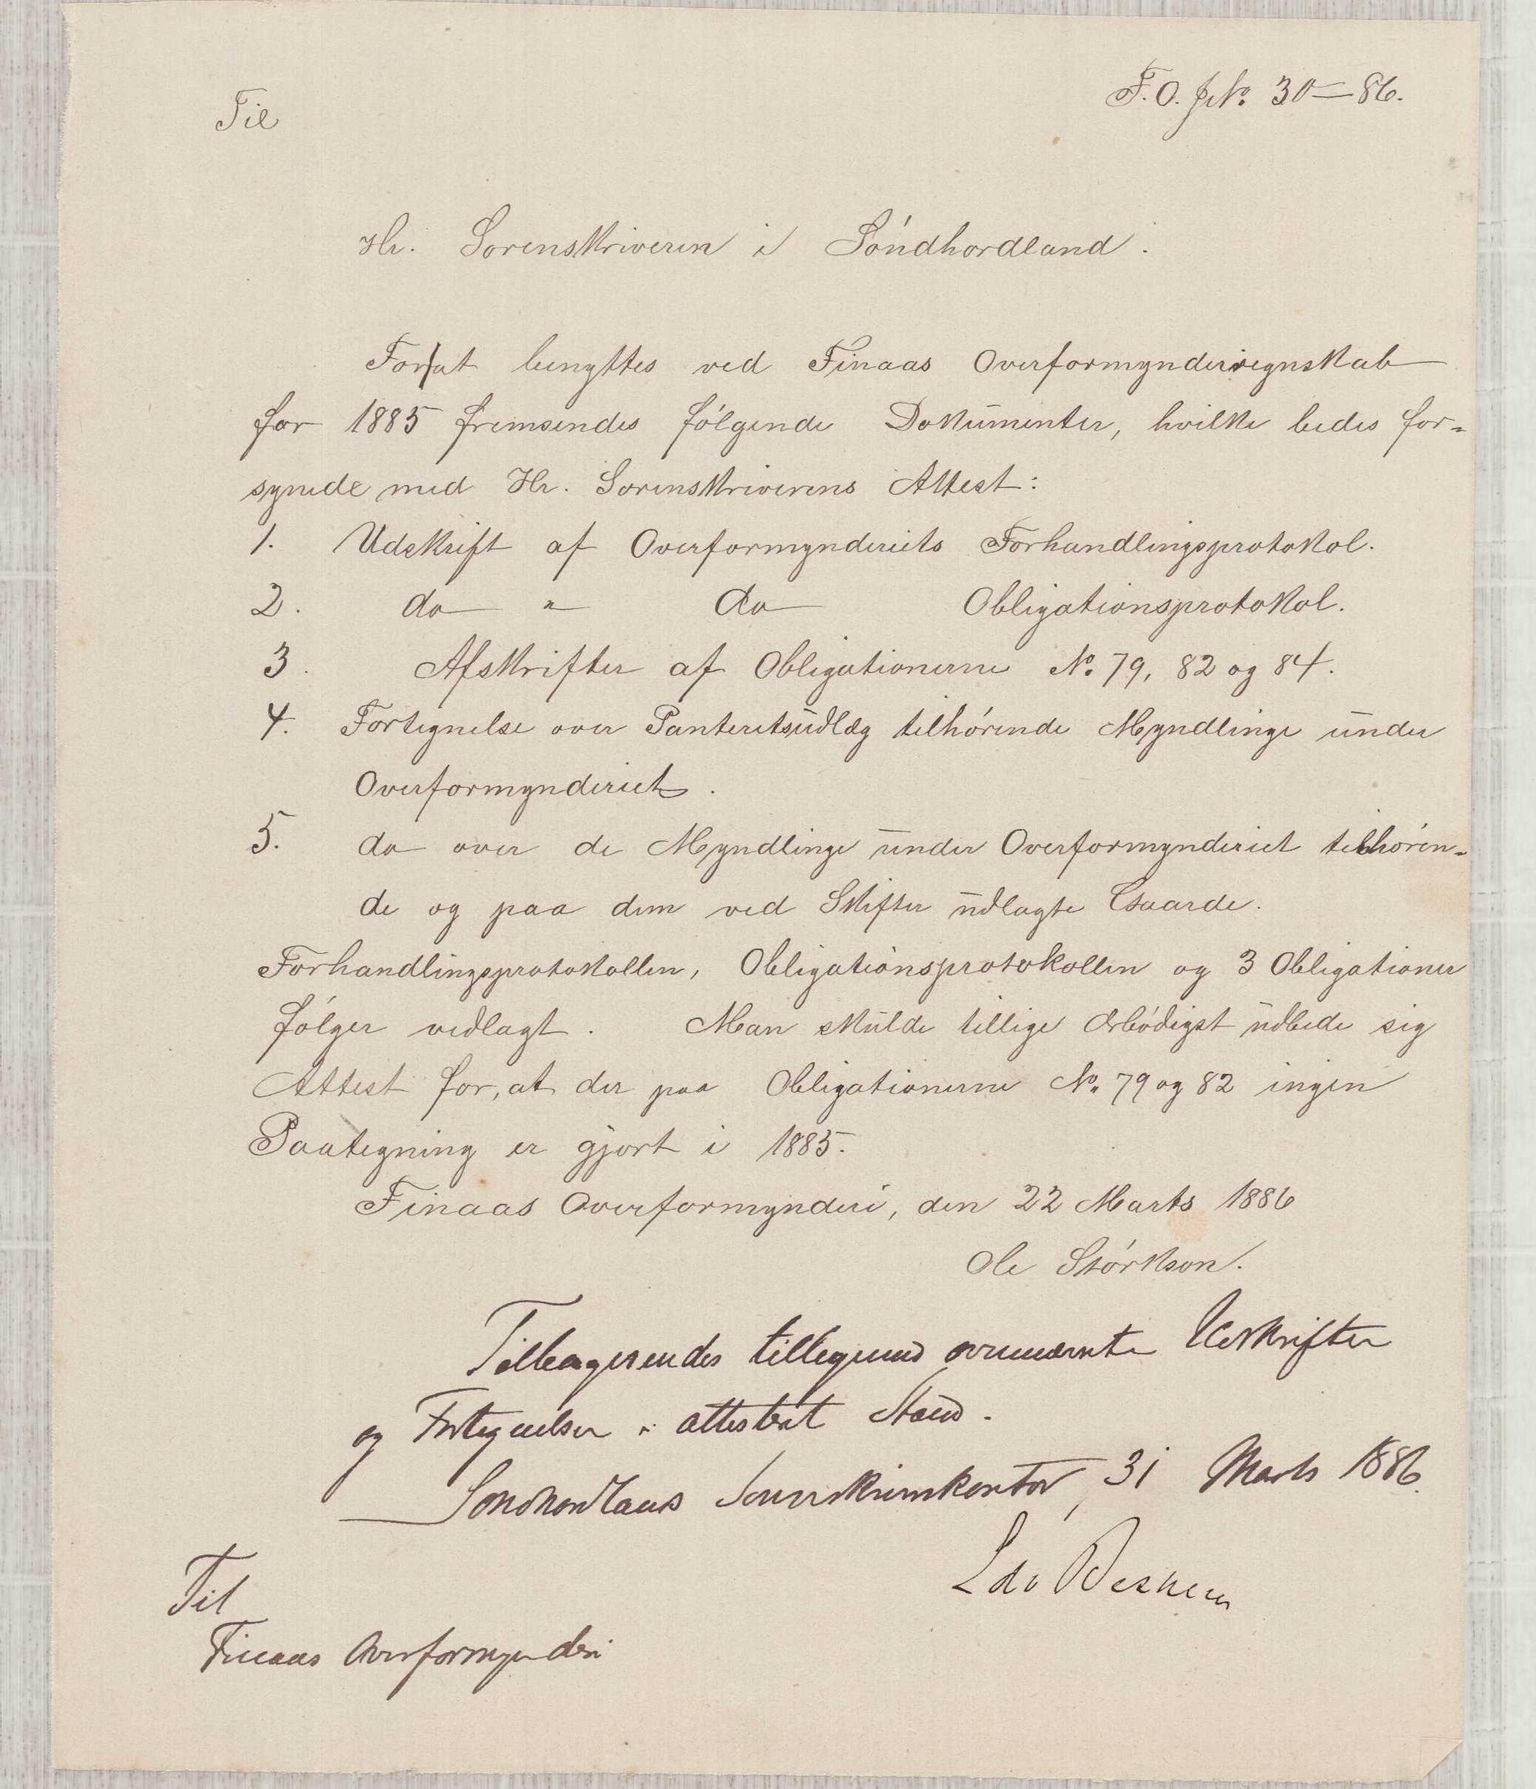 F. O. JrNo. 30 = 86.
Til
Hr. Sorenskriveren i Söndhordland.
For at benyttes ved Finaas Overformynderiregnskab
for 1885 fremsendes følgende Dokumenter, hvilke bedes for=
synede med Hr. Sorenskriverens Attest:
1. Udskrift af Overformynderiets Forhandlingsprotokol.
2. do " do Obligationsprotokol.
3. Afskrifter af Obligationerne No. 79, 82 og 84.
4. Fortegnelse over Panteretsudlæg tilhørende Myndlinge under
Overformynderiet.
5. do over de Myndlinge under Overformynderiet tilhøren=
de og paa dem ved Skifter udlagte Gaarde.
Forhandlingsprotokollen, Obligationsprotokollen og 3 Obligationer
følger vedlagt. Man skulde tillige ærbødigst udbede sig
Attest for, at der paa Obligationerne No. 79 og 82 ingen
Paategning er gjort i 1885.
Finaas Overformynderi, den 22 Marts 1886
Ole Størkson.
Tilbagesendes tilligemed ovennævnte Udskrifter
og Fortegnelser i attesteret Stand.
Søndhordlands Sorenskriverkontor, 31 Marts 1886.
Til
Finaas Overformynderi